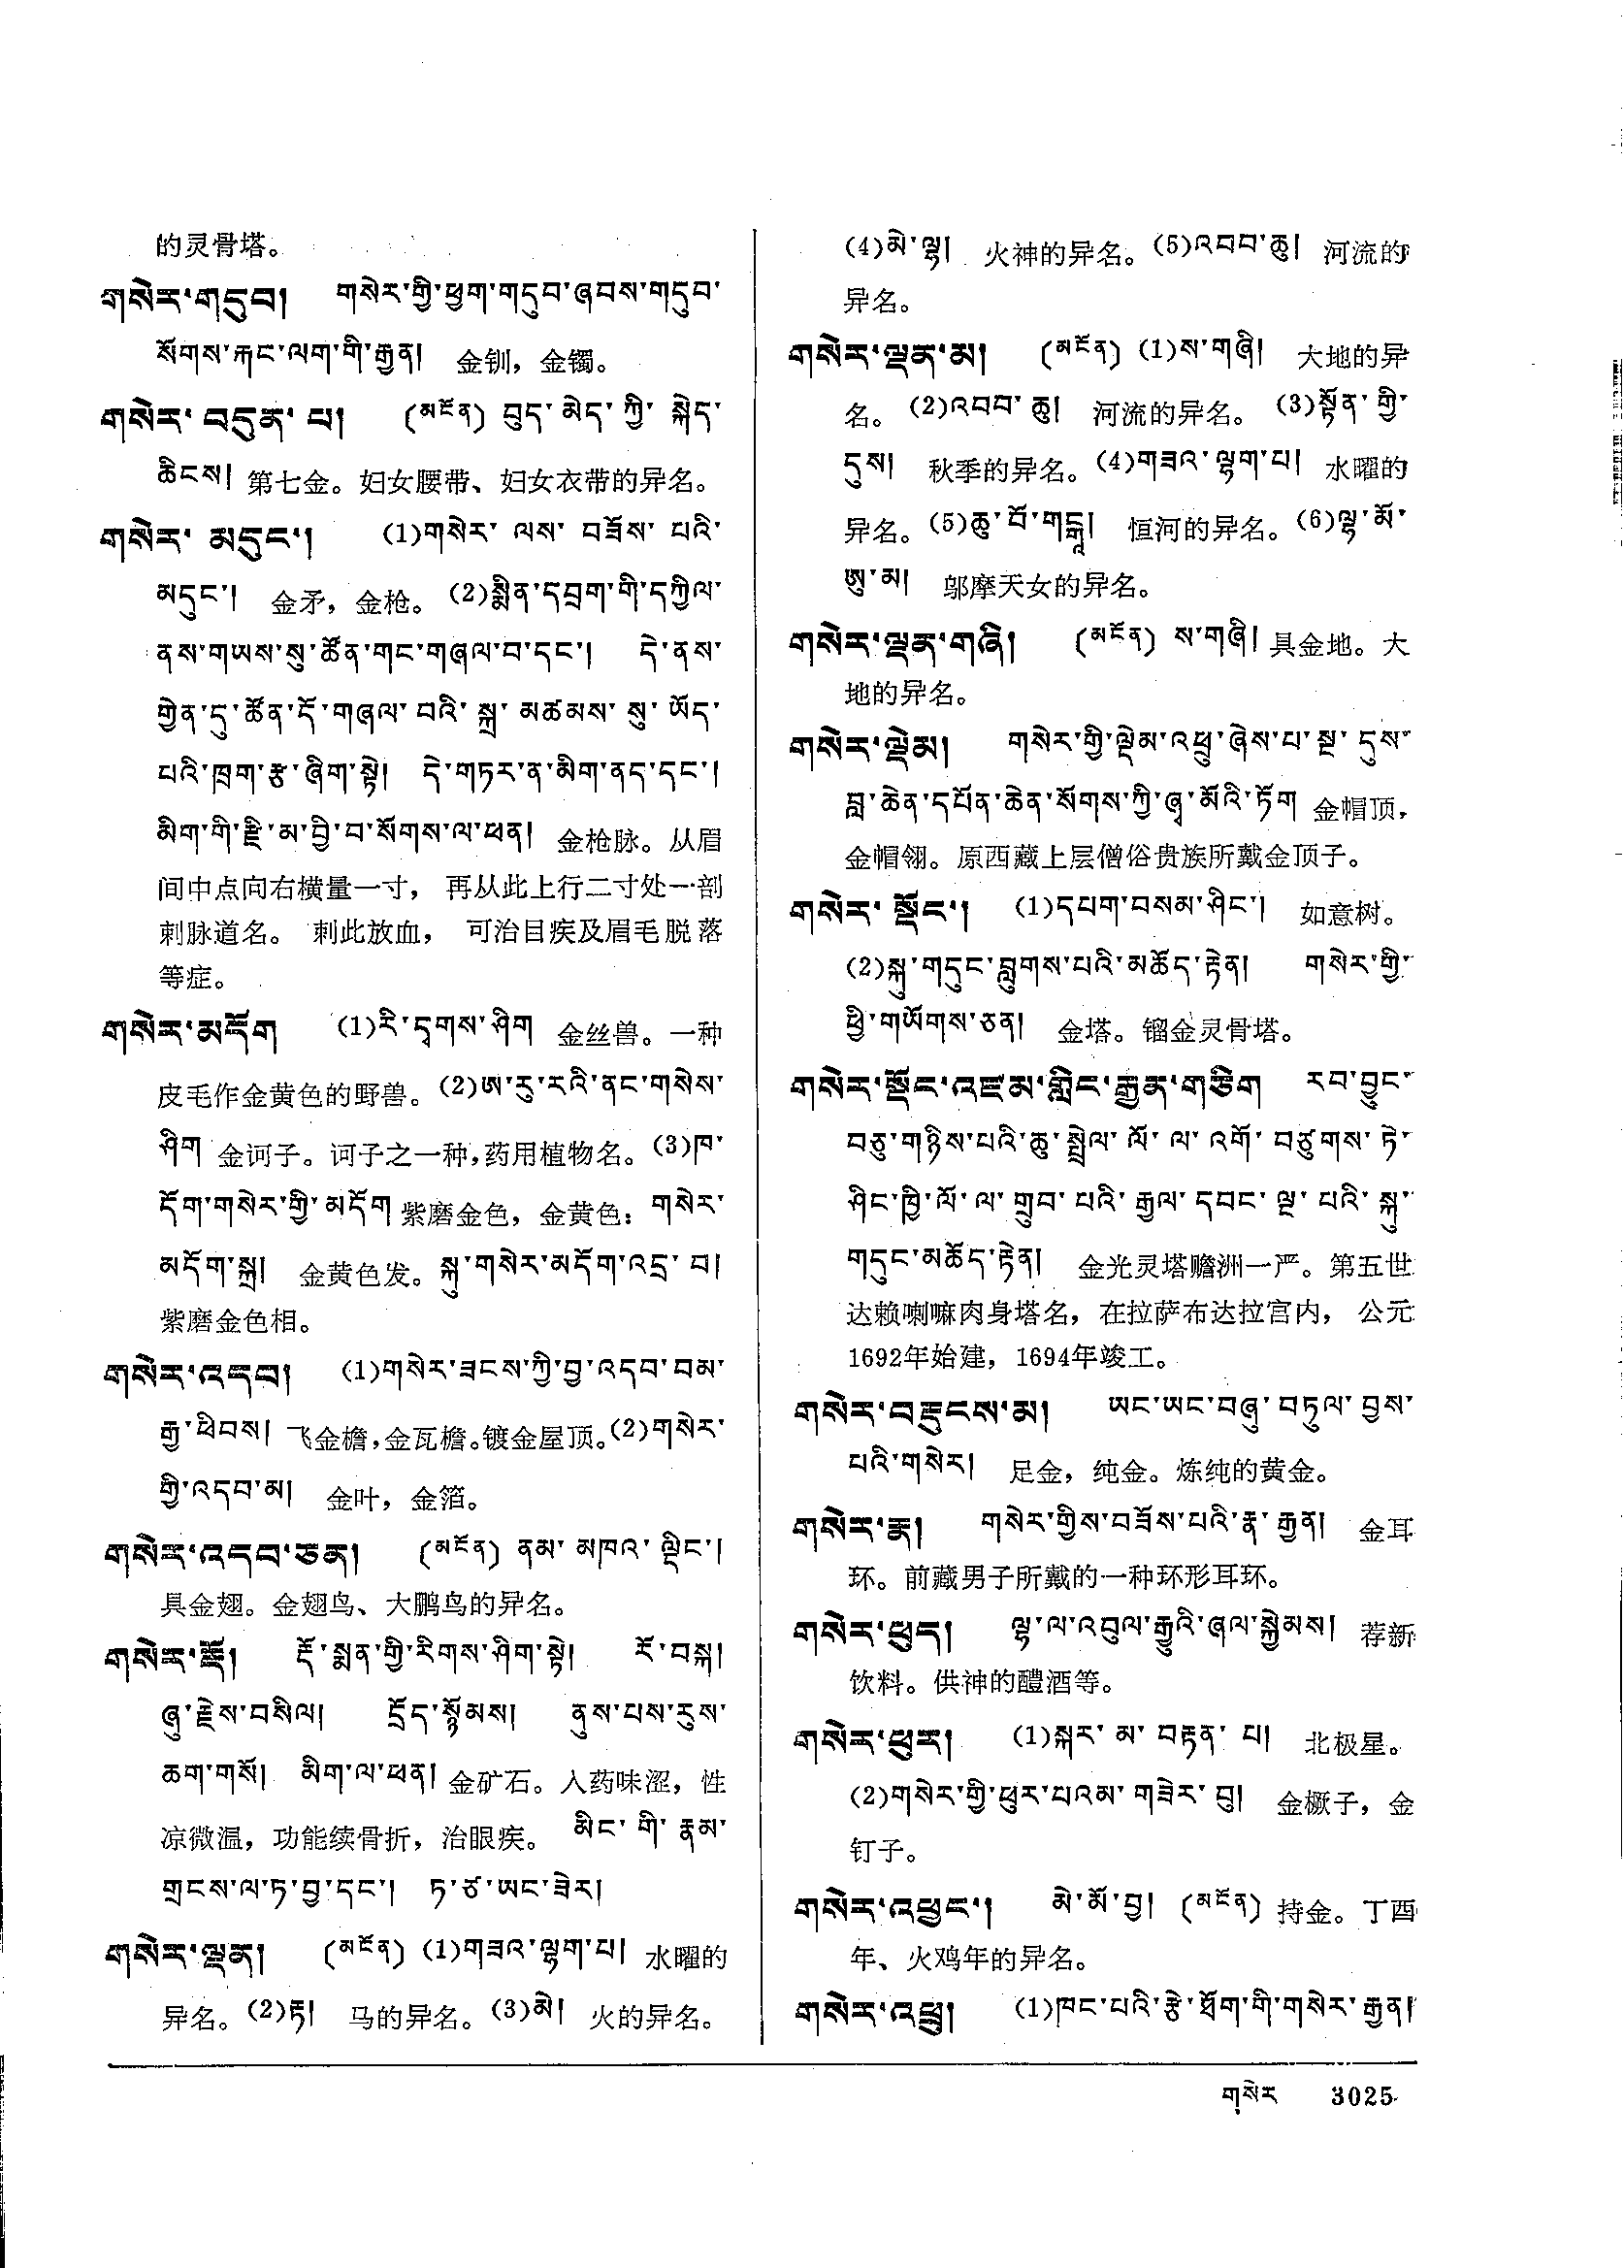 的灵骨塔。
གསེར་གདུབ། གསེར་གྱི་ཕྱག་གདུབ་ཞབས་གདུབ་
སོགས་རྐང་ལག་གི་རྒྱན། 金钏，金镯。
གསེར་བདུན་པ། (མངོན) བུད་མེད་ཀྱི་སྐེད་
ཆིངས། 第七金。妇女腰带、妇女衣带的异名。
གསེར་མདུང་། (1)གསེར་ལས་བཟོས་པའི་
མདུང་། 金矛，金枪。(2)སྨིན་དབྲག་གི་དཀྱིལ་
ནས་གཡས་སུ་ཚོན་གང་གཞལ་བ་དང་། དེ་ནས་
གྱེན་དུ་ཚོན་དོ་གཞལ་བའི་སྐྲ་མཚམས་སུ་ཡོད་
པའི་ཁྲག་རྩ་ཞིག་སྟེ། དེ་གཏར་ན་མིག་ནད་དང་།
མིག་གི་རྫི་མ་བྱི་བ་སོགས་ལ་ཕན། 金枪脉。从眉
间中点向右横量一寸，再从此上行二寸处一剖
刺脉道名。刺此放血，可治目疾及眉毛脱落
等症。
གསེར་མདོག (1)རི་དྭགས་ཤིག 金丝兽。一种
皮毛作金黄色的野兽。(2)ཨ་རུ་རའི་ནང་གསེས་
ཤིག 金诃子。诃子之一种，药用植物名。(3)ཁ་
དོག་གསེར་གྱི་མདོག 紫磨金色，金黄色：གསེར་
མདོག་སྐྲ། 金黄色发。སྐུ་གསེར་མདོག་འདྲ་བ།
紫磨金色相。
གསེར་འདབ། (1)གསེར་ཟངས་ཀྱི་བྱ་འདབ་བམ་
རྒྱ་ཕིབས། 飞金檐，金瓦檐。镀金屋顶。(2)གསེར་
གྱི་འདབ་མ། 金叶，金箔。
གསེར་འདབ་ཅན། (མངོན) ནམ་མཁའ་ལྡིང་།
具金翅。金翅鸟、大鹏鸟的异名。
གསེར་རྡོ། རྡོ་སྨན་གྱི་རིགས་ཤིག་སྟེ། རོ་བསྐ།
ཞུ་རྗེས་བསིལ། དྲོད་སྙོམས། ནུས་པས་རུས་
ཆག་གསོ། མིག་ལ་ཕན། 金矿石。入药味涩，性
凉微温，功能续骨折，治眼疾。 མིང་གི་རྣམ་
གྲངས་ལ་ཏ་བྱ་དང་། ཏ་ཙ་ཡང་ཟེར།
གསེར་ལྡན། (མངོན) (1)གཟའ་ལྷག་པ། 水曜的
异名。(2)རྟ། 马的异名。(3)མེ། 火的异名。
(4)མེ་ལྷ། 火神的异名。(5)འབབ་ཆུ། 河流的
异名。
གསེར་ལྡན་མ། (མངོན) (1)ས་གཞི། 大地的异
名。(2)འབབ་ཆུ། 河流的异名。(3)སྟོན་གྱི་
དུས། 秋季的异名。(4)གཟའ་ལྷག་པ། 水曜的
异名。(5)ཆུ་བོ་གངྒཱ། 恒河的异名。(6)ལྷ་མོ་
ཨུ་མ། 邬摩天女的异名。
གསེར་ལྡན་གཞི། (མངོན) ས་གཞི། 具金地。大
地的异名。
གསེར་ལྡེམ། གསེར་གྱི་ལྡེམ་འཕྲུ་ཞེས་པ་སྔ་དུས་
བླ་ཆེན་དཔོན་ཆེན་སོགས་ཀྱི་ཞྭ་མོའི་ཏོག 金帽顶，
金帽翎。原西藏上层僧俗贵族所戴金顶子。
གསེར་སྡོང་། (1)དཔག་བསམ་ཤིང་། 如意树。
(2)སྐུ་གདུང་བླུགས་པའི་མཆོད་རྟེན། གསེར་གྱི་
ཕྱི་གཡོགས་ཅན། 金塔。镏金灵骨塔。
གསེར་སྡོང་འཛམ་གླིང་རྒྱན་གཅིག རབ་བྱུང་
བཅུ་གཉིས་པའི་ཆུ་སྤྲེལ་ལོ་ལ་འགོ་བཙུགས་ཏེ་
ཤིང་ཁྱི་ལོ་ལ་གྲུབ་པའི་རྒྱལ་དབང་ལྔ་པའི་སྐུ་
གདུང་མཆོད་རྟེན། 金光灵塔赡洲一严。第五世
达赖喇嘛肉身塔名，在拉萨布达拉宫内，公元
1692年始建，1694年竣工。
གསེར་བརྡུངས་མ། ཡང་ཡང་བཞུ་བཏུལ་བྱས་
པའི་གསེར། 足金，纯金。炼纯的黄金。
གསེར་རྣ། གསེར་གྱིས་བཟོས་པའི་རྣ་རྒྱན། 金耳
环。前藏男子所戴的一种环形耳环。
གསེར་ཕུད། ལྷ་ལ་འབུལ་རྒྱུའི་ཞལ་སྐྱེམས། 荐新
饮料。供神的醴酒等。
གསེར་ཕུར། (1)སྐར་མ་བརྟན་པ། 北极星。
(2)གསེར་གྱི་ཕུར་པའམ་གཟེར་བུ། 金橛子，金
钉子。
གསེར་འཕྱང་། མེ་མོ་བྱ། (མངོན) 持金。丁酉
年、火鸡年的异名。
གསེར་འཕྲུ། (1)ཁང་པའི་རྩེ་ཐོག་གི་གསེར་རྒྱན།
གསེར 3025